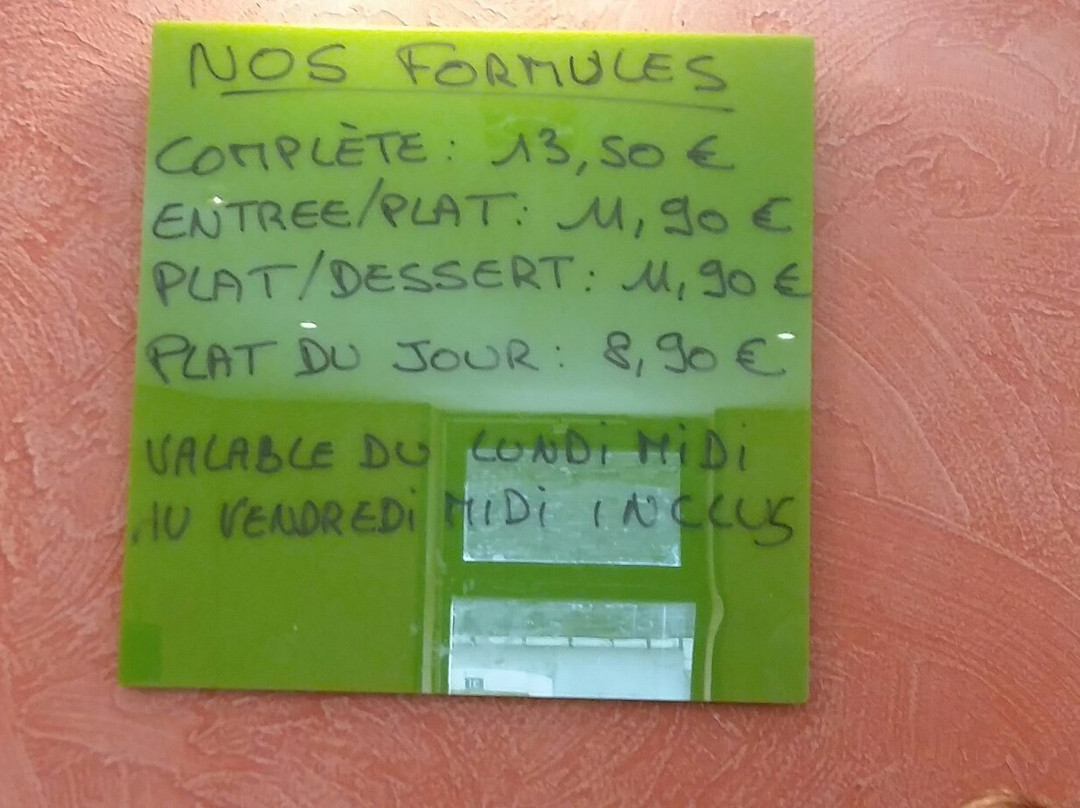 NOS FORMULES
COMPLÈTE : 13,50 €
ENTREE/PLAT : 11,90 €
PLAT/DESSERT : 11,90 €
PLAT DU JOUR : 8,90 €
VALABLE DU LUNDi MiDi
AU VENDREDi MIDi INCLUS